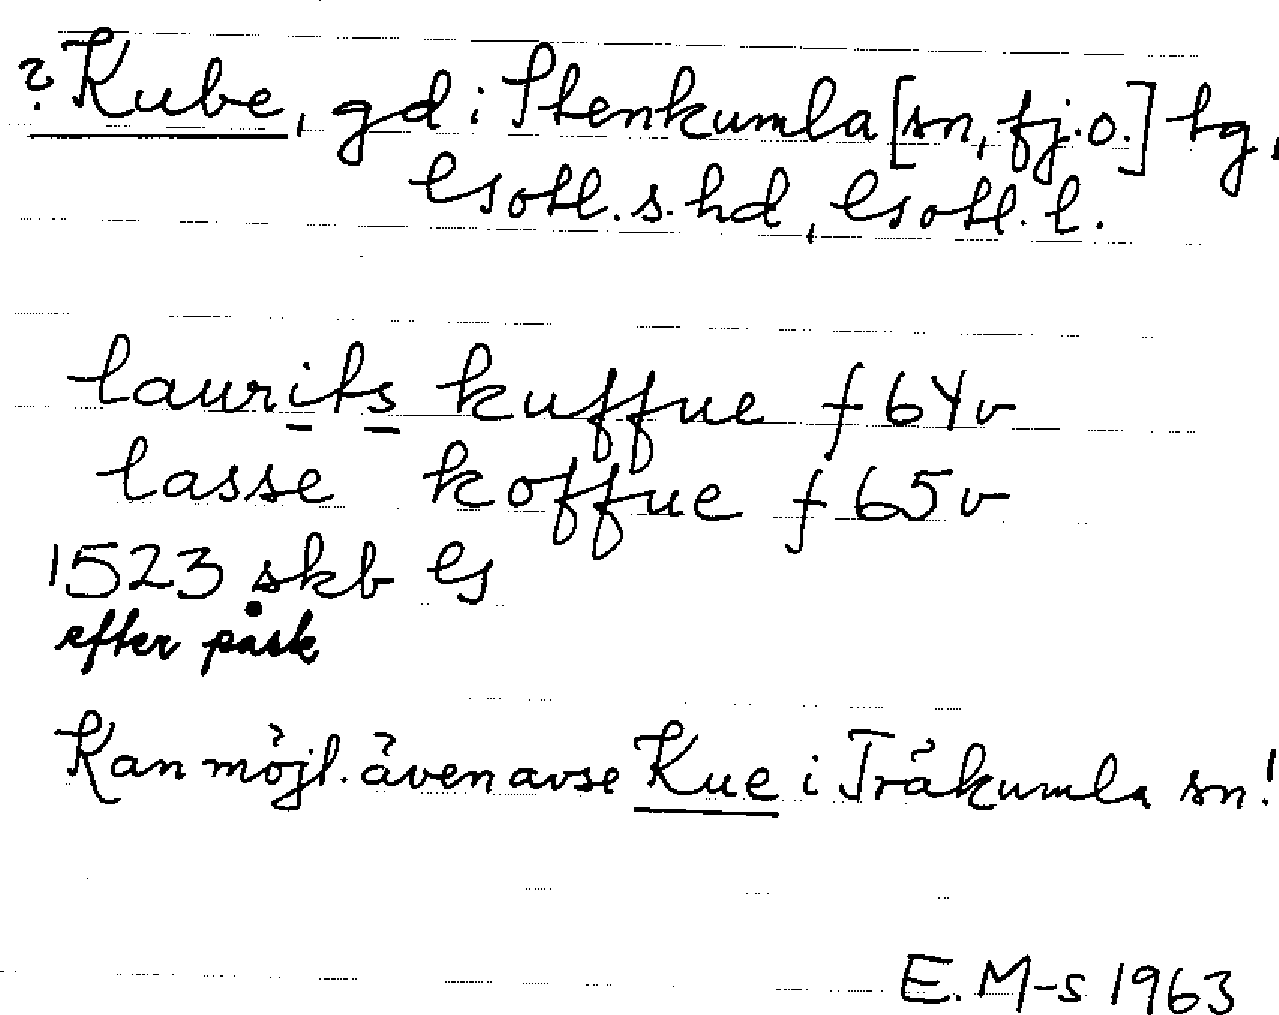 ? Kube, gd i Stenkumla [sn, fj.o.] tg,
Gotl. s. hd, Gotl. l.
laurits kuffue f 64v
lasse koffue f 65v
1523 skb G
efter påsk
Kan möjl. även avse Kue i Träkumla sn!
E. M-s 1963